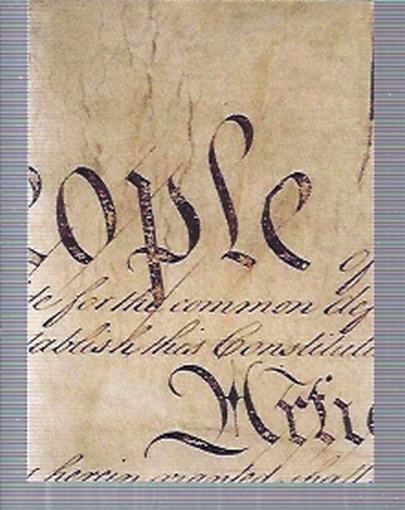 eople
de for the common def
tablish this Constitut
Artic
herein granted shall